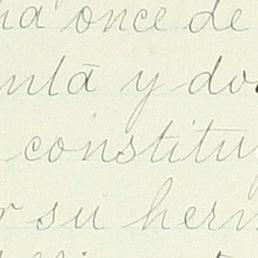 ha once de
nta y do
constitu
r su herm